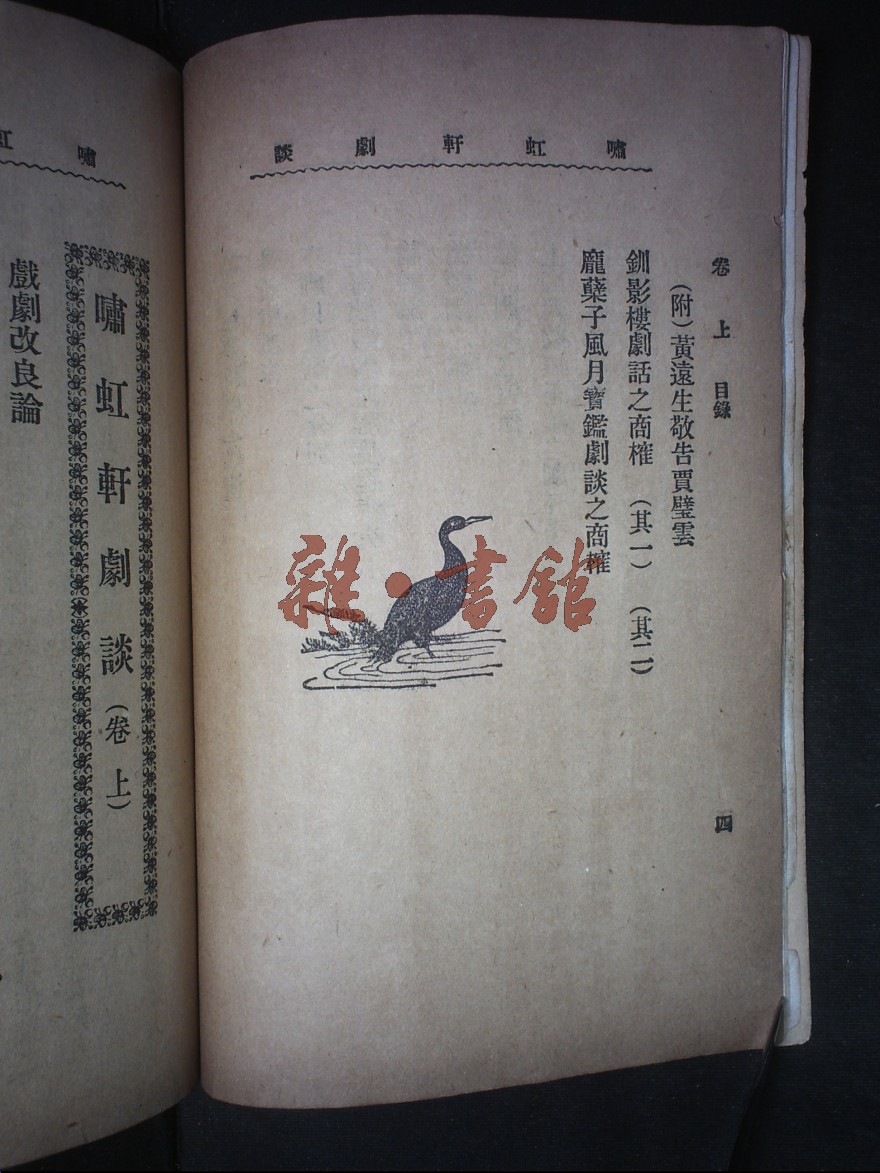 嘯虹軒劇談
卷上 目錄
四
(附)黃遠生敬告賈璧雲
釧影樓劇話之商榷 (其一) (其二)
龐蘗子風月寶鑑劇談之商榷
雜·書館
嘯虹
嘯虹軒劇談(卷上)
戲劇改良論